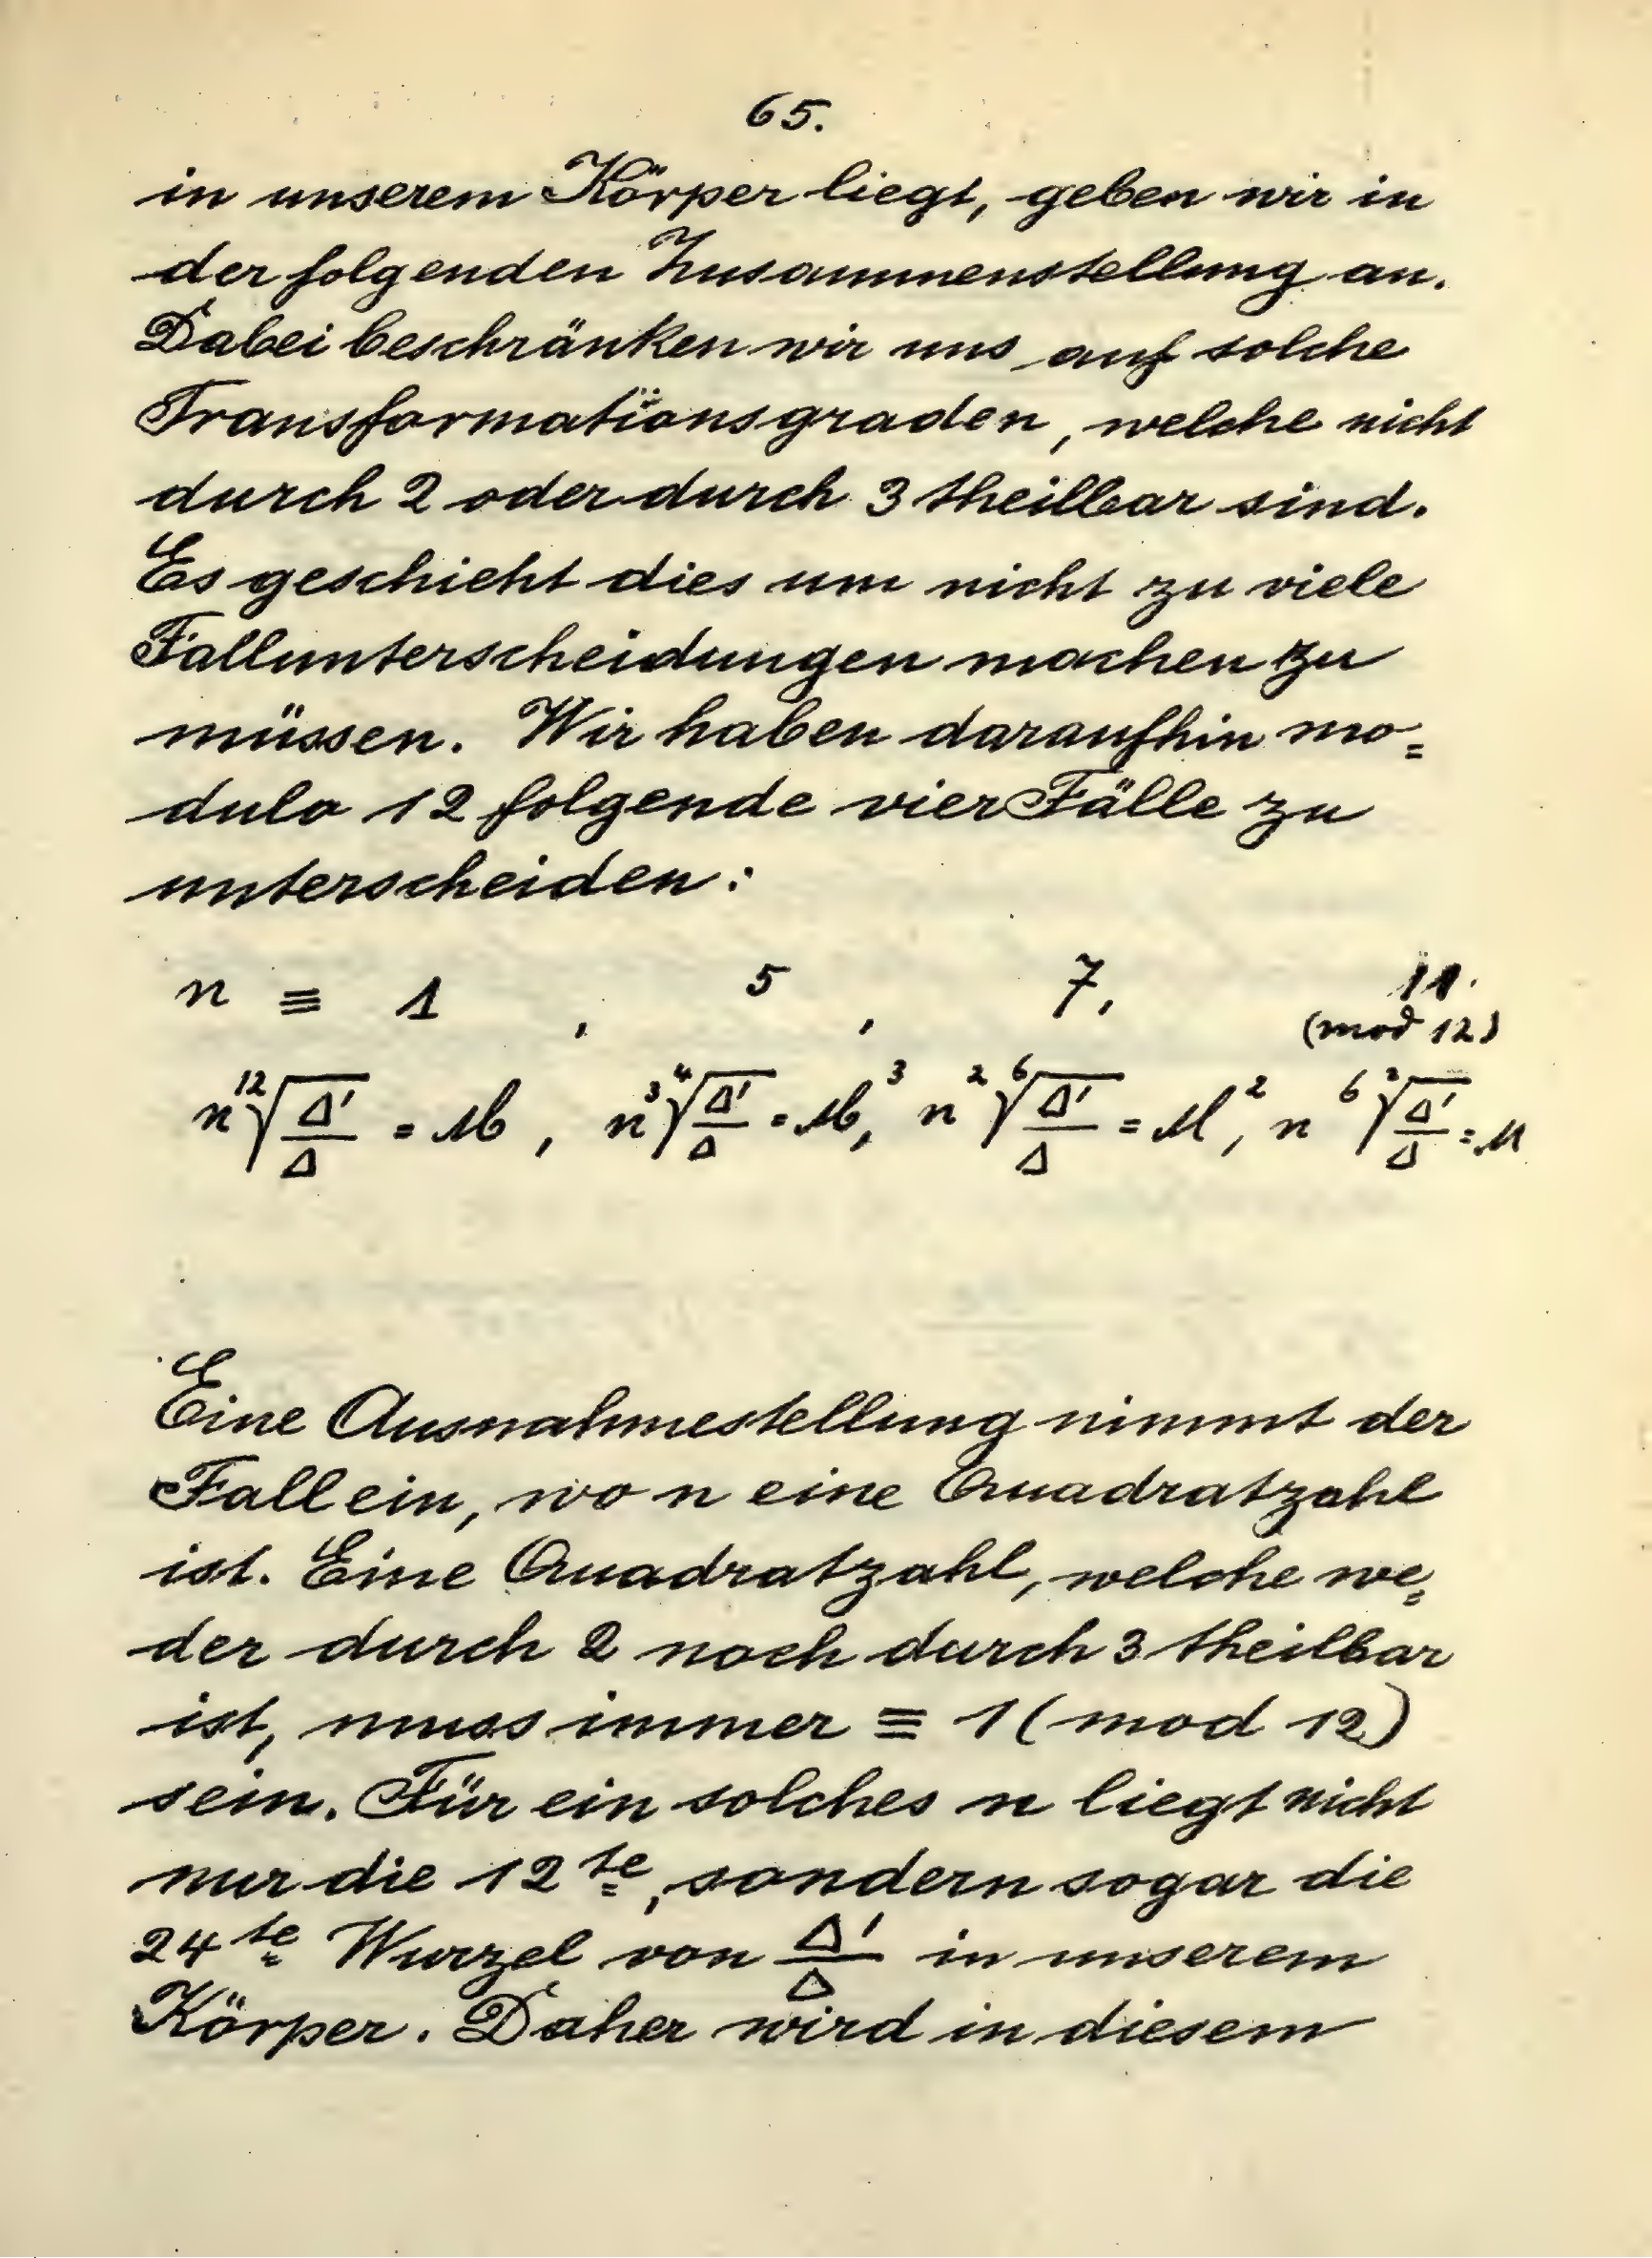 65.
in unserem Körper liegt, geben wir in
der folgenden Zusammenstellung an.
Dabei beschränken wir uns auf solche
Transformationsgraden, welche nicht
durch 2 oder durch 3 theilbar sind.
Es geschieht dies um nicht zu viele
Fallunterscheidungen machen zu
müssen. Wir haben daraufhin mo=
dulo 12 folgende vier Fälle zu
unterscheiden:
n ≡ 1 , 5 , 7, 11.
(mod 12)
n \sqrt[12]{\frac{Δ'}{Δ}} = M , n^3 \sqrt[4]{\frac{Δ'}{Δ}} = M^3, n^2 \sqrt[6]{\frac{Δ'}{Δ}} = M^2, n^6 \sqrt[2]{\frac{Δ'}{Δ}} = M
Eine Ausnahmestellung nimmt der
Fall ein, wo n eine Quadratzahl
ist. Eine Quadratzahl, welche we=
der durch 2 noch durch 3 theilbar
ist, muss immer ≡ 1 (mod 12)
sein. Für ein solches n liegt nicht
nur die 12te, sondern sogar die
24te Wurzel von \frac{Δ'}{Δ} in unserem
Körper. Daher wird in diesem